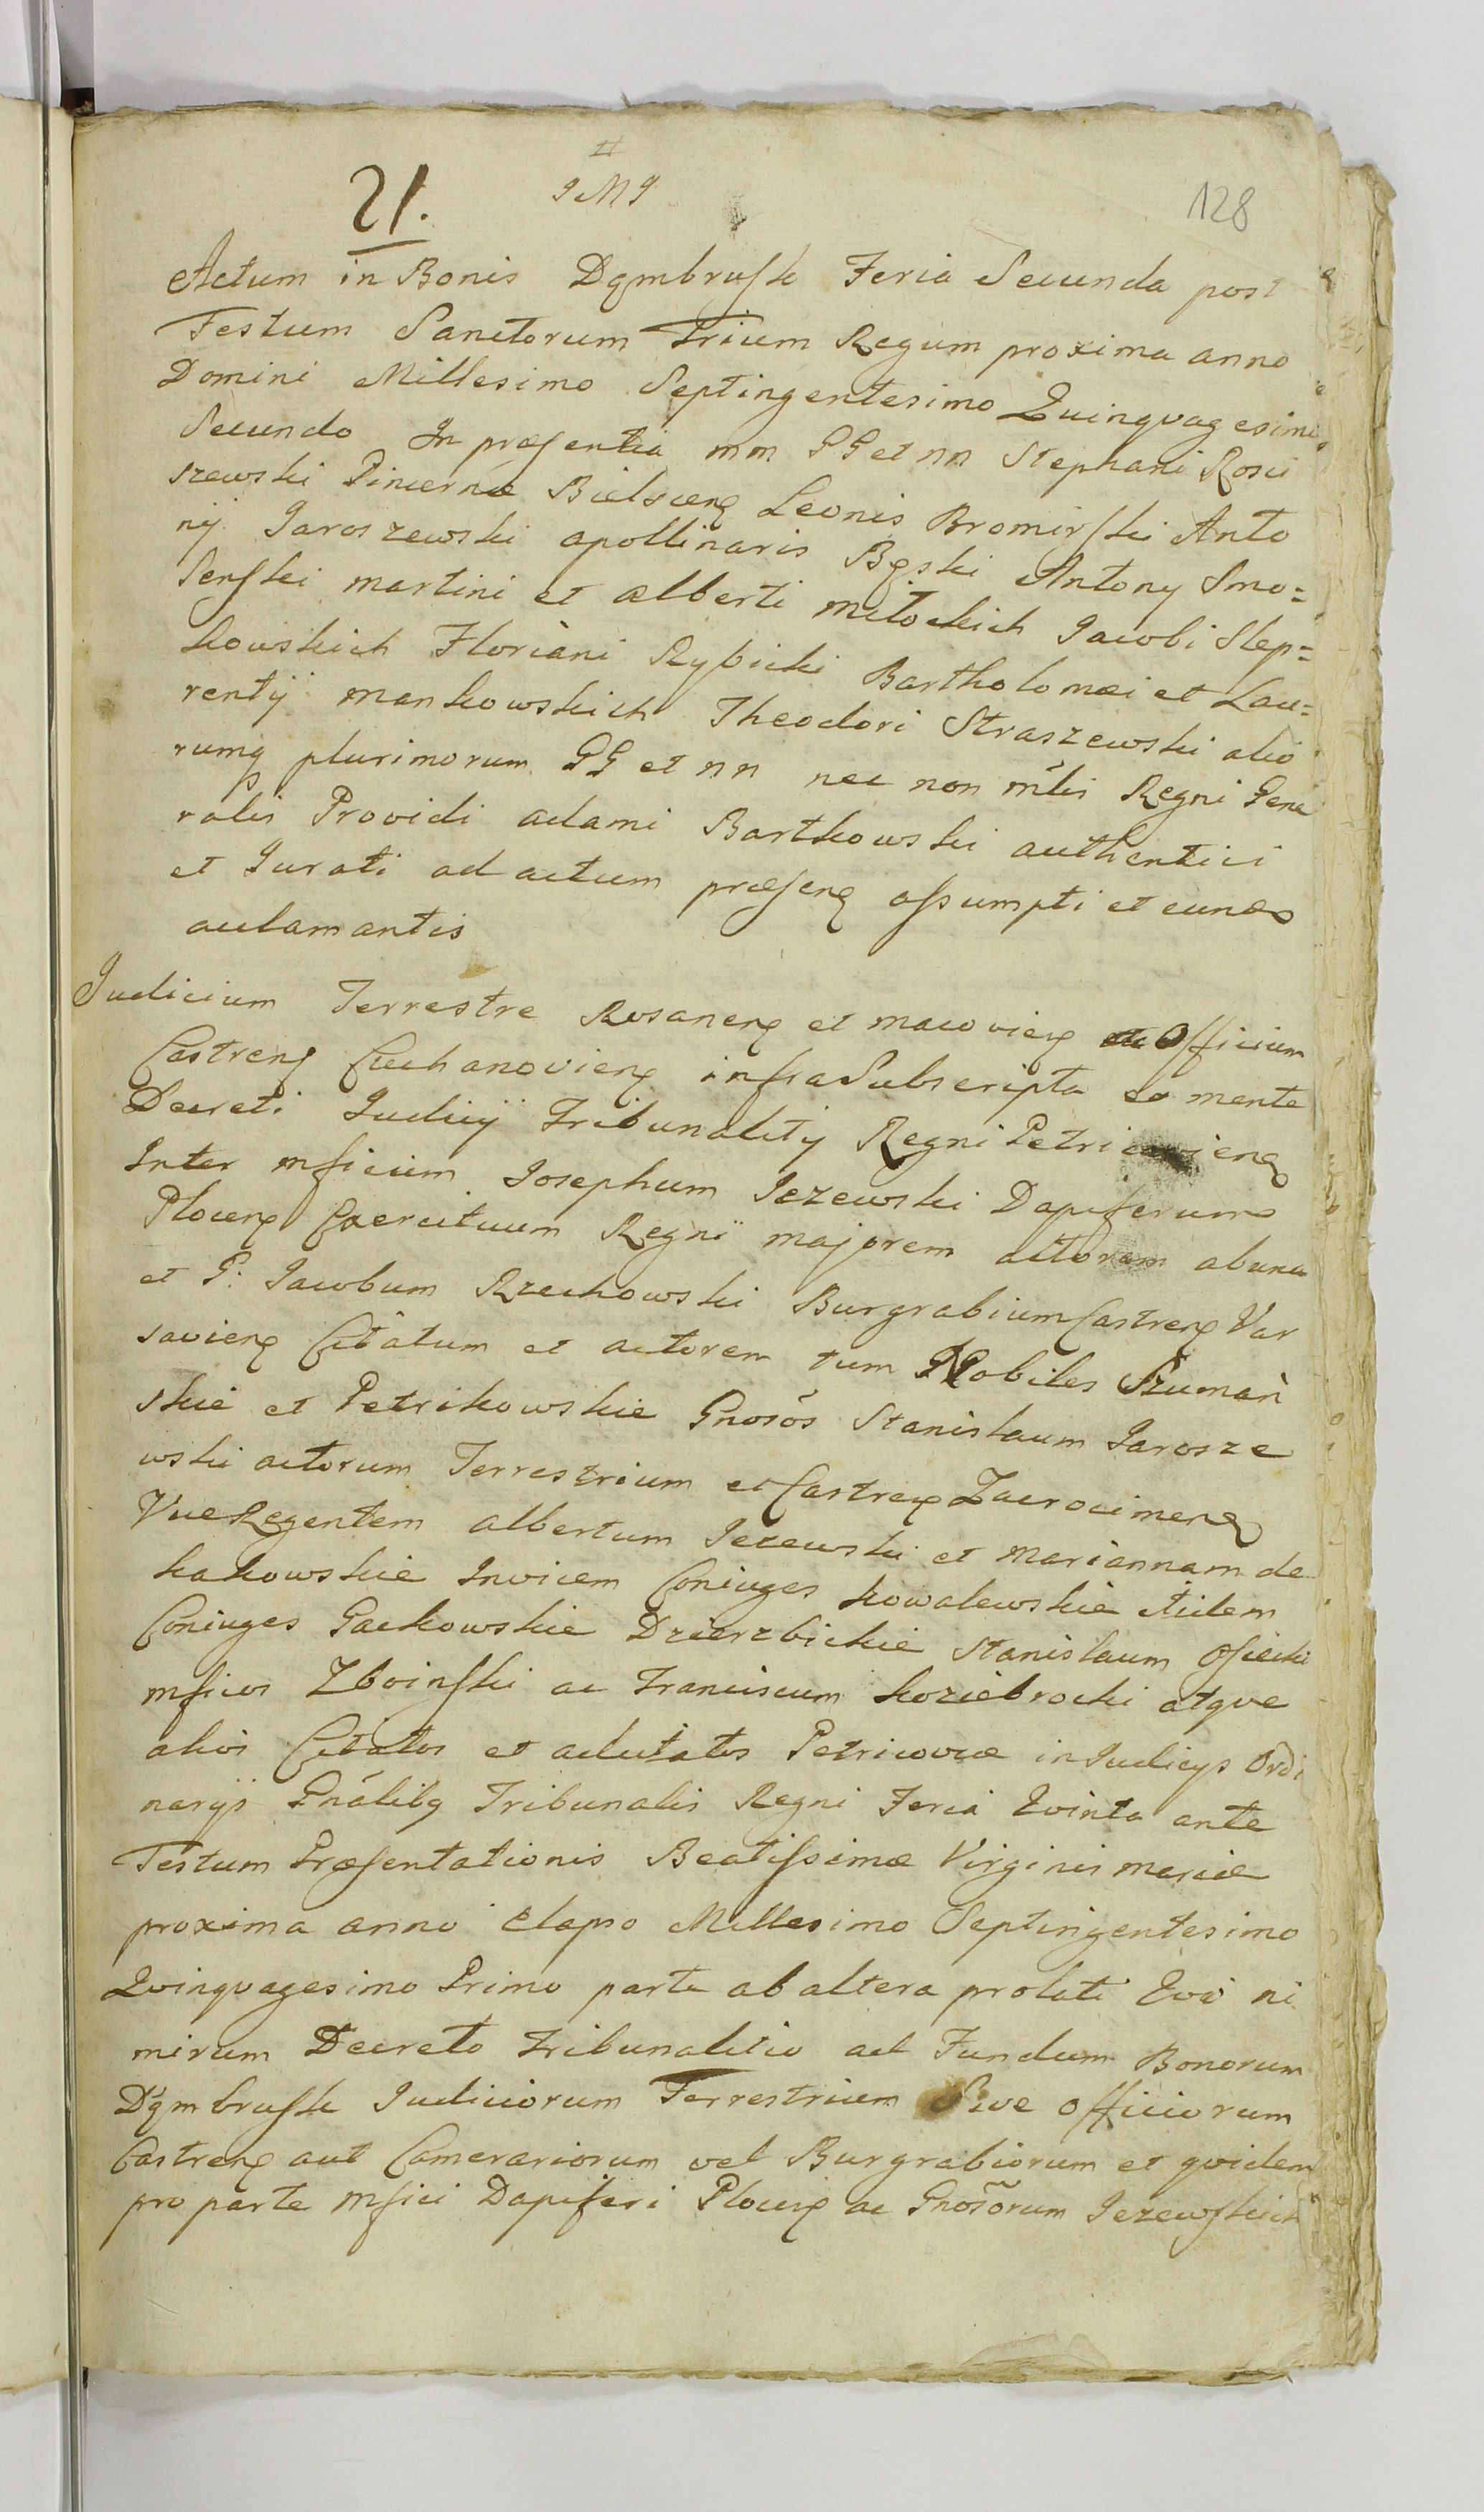 21. JMJ 128
Actum in Bonis Dąmbrusk Feria Secunda post
Festum Sanctorum Trium Regum proxima anno
Domini Millesimo Septingentesimo Quinquagesimo
Secundo In præsentia mm GG et nn Stephani Rosci
szewski Pincernæ Bielscen Leonis Bromirski Anto
nij Jaroszewski apollinaris Bęski Antony Smo=
senski martini et alberti miłockich Jacobi Slep=
kowskich Floriani Rypicki Bartholomæi et Lau=
rentij mankowskich Theodori Straszewski alio
rumq plurimorum GG et nn nec non mlis Regni Gene
ralis Providi adami Bartkowski authentici
et Jurati ad actum præsen assumpti et eundo
aclamantis
Judicium Terrestre Rosanen et macovien Officium
Castren Ciechanovien infra Subscripta mente
Decreti Judicij Tribunalitij Regni Petricovien
Inter mficum Josephum Jezewski Dapiferum
Plocen Exercituum Regni majorem actorem ab una
et G: Jacobum Rzechowski Burgrabium Castren Var
savien Citatum et actorem tum Nobiles Szumań
skie et Petrikowskie Gnosos Stanislaum Jarosze
wski actorum Terrestrium et Castren Zacrocimen
ViceRegentem albertum Jezewski et mariannam de
kakowskie Invicem Coniuges kowalewskie itidem
Coniuges Gackowskie Dzierzbickie Stanislaum Osiecki
mficos Zboinski ac Franciscum koziebrocki atque
alios Citatos et adcitatos Petricoviæ in Judicys Ordi
narijs Gnalibq Tribunalis Regni Feria Qvinta ante
Festum Præsentationis Beatissimæ Virginis mariæ
proxima anno elapso Millesimo Septingentesimo
Qvinqvagesimo Primo parte ab altera prolati Qvo ni
mirum Decreto Tribunalitio ad Fundum Bonorum
Dąmbrusk Judiciorum Terrestrium Sive officiorum
Castren aut Camerariorum vel Burgrabiorum et qvidem
pro parte Mfici Dapiferi Plocen ac Gnosorum Jezewskich